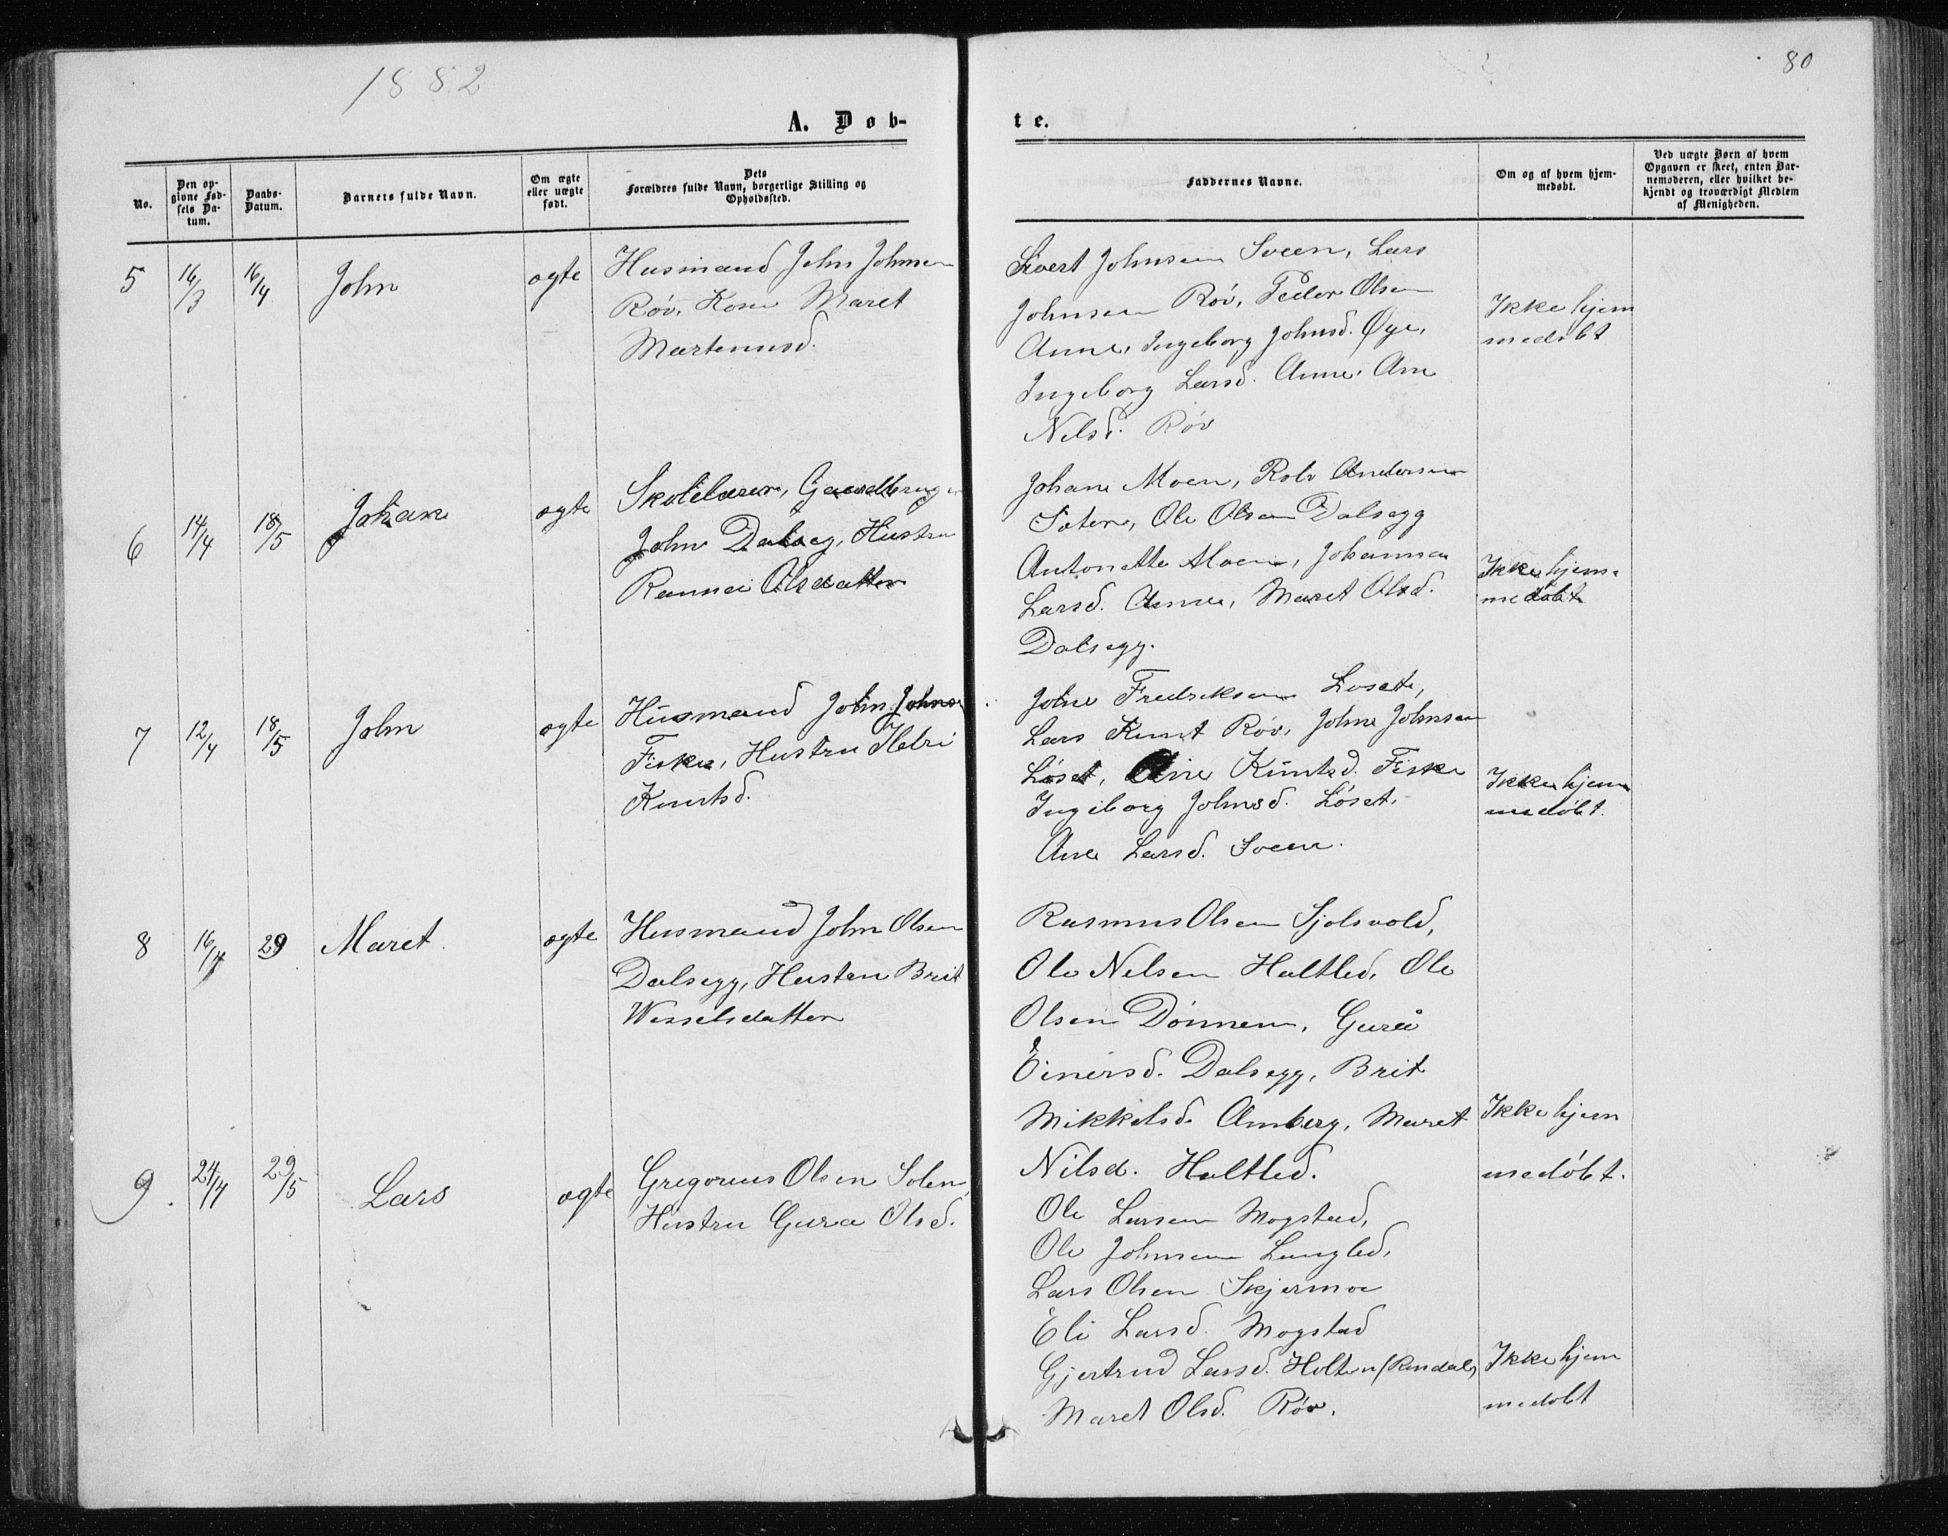 1882
80
A. Døb-
te.
No.
Den op-
givne Fød-
sels Da-
tum.
Daabs-
Datum.
Barnets fulde Navn.
Om ægte
eller uægte
født.
Dets
Forældres fulde Navn, borgerlige Stilling og
Opholdssted.
Faddernes Navne.
Om og af hvem hjem-
medøbt.
Ved uægte Børn af hvem
Opgaven er skeet, enten Bar-
nemoderen, eller hvilket be-
kjendt og troværdigt Medlem
af Menigheden.
5
16/3
16/4
John
ægte
Husmand John Johnsen
Røv, Kone Maret
Martenusd.
Sivert Johnsen Sveen, Lars
Johnsen Røv, Peder Olsen
Anne, Ingeborg Johnsd. Øye,
Ingeborg Larsd. Anne, Ane
Nilsd. Røv
Ikke hjem
medøbt
6
14/4
18/5
Johan
ægte
Skolelærer, Gaardbruger
John Dalseg, Hustru
Rannei Olsdatter
Johan Moen, Rolv Andersen
Sæter, Ole Olsen Dalsegg
Antonette Moen, Johanna
Larsd. Anne, Maret Olsd.
Dalsegg.
Ikke hjem-
medøbt
7
12/4
18/5
John
ægte
Husmand John Johnsen
Fiske, Hustru
Knutsd.
John Fredriksen Løset,
Lars Knut Røv, John Johnsen
Løset, Ane Knutsd. Fiske
Ingeborg Johnsd. Løset,
Ane Larsd. Sveen.
Ikke hjem
medøbt.
8
16/4
29
Maret.
ægte
Husmand John Olsen
Dalsegg, Hustru Brit
Wesselsdatter
Rasmus Olsen Sjølsvold,
Ole Nelsen Holtled, Ole
Olsen Dønnem, Guru
Einersd. Dalsegg, Brit
Mikkelsd. Amberg, Maret
Nilsd. Holtled.
Ikke hjem
medøbt.
9.
24/4
29/5
Lars
ægte
Gregorius Olsen Solem,
Hustru Guru Olsd.
Ole Larsen Mogstad,
Ole Johnsen Langled,
Lars Olsen Skjermoe
Eli Larsd. Mogstad
Gjertrud Larsd. Holten (Rindal)
Maret Olsd. Røv.
Ikke hjem
medøbt